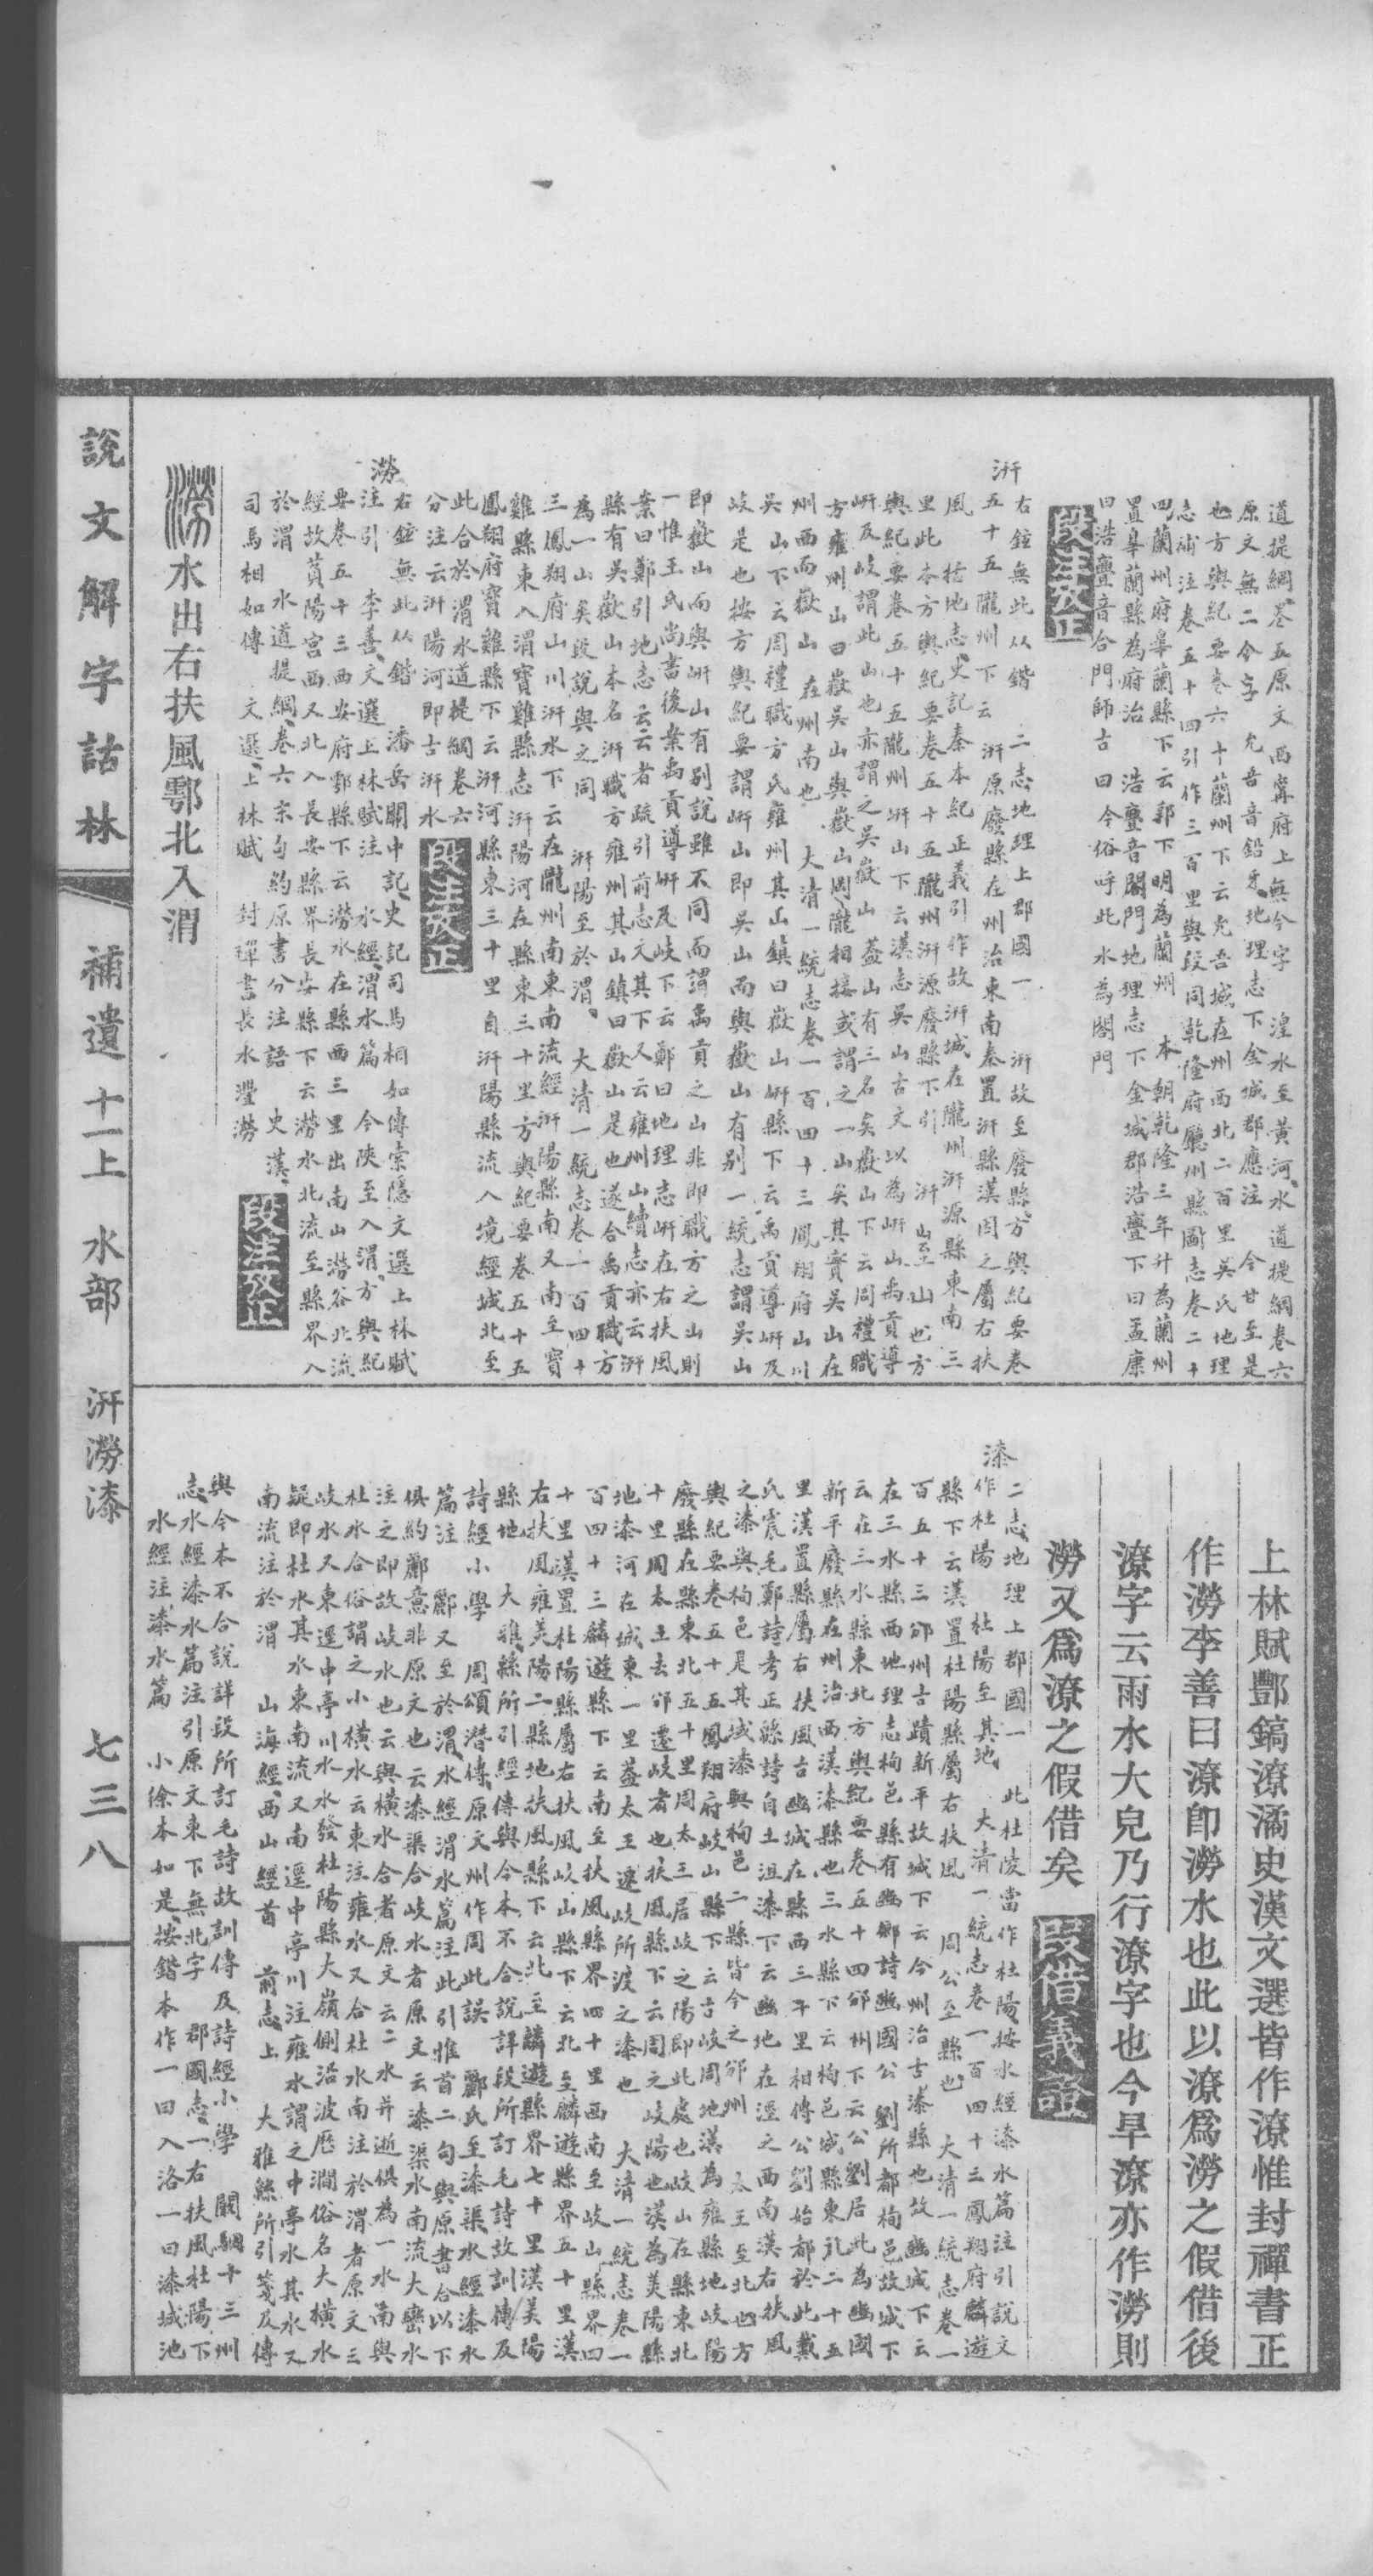 道提綱卷五原文西寧府上無今字　湟水至黃河水道提綱卷六
原文無二今字　允吾音鉛牙地理志下金城郡應注　今甘至是
也方輿紀要卷六十蘭州下云允吾城在州西北二百里吳氏地理
志補注卷五十四引作三百里與段同乾隆府廳州縣圖志卷二十
四蘭州府皋蘭縣下云郭下明為蘭州　本朝乾隆三年升為蘭州
置皋蘭縣為府治　浩亹音閤門地理志下金城郡浩亹下曰孟康
曰浩亹音合門師古曰今俗呼此水為閤門
段注攷正
汧
右鉉無此从鍇　二志地理上郡國一　汧故至廢縣方輿紀要卷
五十五隴州下云汧原廢縣在州治東南秦置汧縣漢因之屬右扶
風　括地志史記秦本紀正義引作故汧城在隴州汧源縣東南三
里此本方輿紀要卷五十五隴州汧源廢縣下引　汧山至山也方
輿紀要卷五十五隴州汧山下云漢志吳山古文以為岍山禹貢導
岍及岐謂此山也亦謂之吳嶽山蓋山有三名矣嶽山下云周禮職
方雍州山曰嶽吳山與嶽山岡隴相接或謂之一山矣其實吳山在
州西而嶽山在州南也　大清一統志卷一百四十三鳳翔府山川
吳山下云周禮職方氏雍州其山鎮曰嶽山岍縣下云禹貢導岍及
岐是也按方輿紀要謂岍山即吳山而與嶽山有別一統志謂吳山
即嶽山而與岍山有別說雖不同而謂禹貢之山非即職方之山則
一惟王氏尚書後案禹貢導岍及岐下云鄭曰地理志岍在右扶風
案曰鄭引地志云云者疏引前志文其下又云雍州山續志亦云汧
縣有吳嶽山本名汧職方雍州其山鎮曰嶽山是也遂合禹貢職方
為一山矣段說與之同　汧陽至於渭　大清一統志卷一百四十
三鳳翔府山川汧水下云在隴州南東南流經汧陽縣南又南至寶
雞縣東入渭寶雞縣志汧陽河在縣東三十里方輿紀要卷五十五
鳳翔府寶雞縣下云汧河縣東三十里自汧陽縣流入境經城北至
此合於渭水道提綱卷六
分注云汧陽河即古汧水
段注攷正
澇
右鉉無此从鍇　潘岳關中記史記司馬相如傳索隱文選上林賦
注引　李善文選上林賦注　水經渭水篇　今陝至入渭方輿紀
要卷五十三西安府鄠縣下云澇水在縣西三里出南山澇谷北流
經故萯陽宮西又北入長安縣界長安縣下云澇水北流至縣界入
於渭　水道提綱卷六宗句約原書分注語　史漢
司馬相如傳　文選上林賦　封禪書長水灃澇
段注攷正
澇水出右扶風鄠北入渭
上林賦酆鎬潦潏史漢文選皆作潦惟封禪書正
作澇李善曰潦卽澇水也此以潦爲澇之假借後
潦字云雨水大皃乃行潦字也今旱潦亦作澇則
澇又爲潦之假借矣
段借義證
漆
二志地理上郡國一　此杜陵當作杜陽按水經漆水篇注引說文
作杜陽　杜陽至其地　大清一統志卷一百四十三鳳翔府麟遊
縣下云漢置杜陽縣屬右扶風　周公至縣也　大清一統志卷一
百五十三邠州古蹟新平故城下云今州治古漆縣也故豳城下云
在三水縣西地理志栒邑縣有豳鄉詩豳國公劉所都栒邑故城下
云在三水縣東北方輿紀要卷五十四邠州下云公劉居此為豳國
新平廢縣在州治西漢漆縣也三水縣下云栒邑城縣東北二十五
里漢置縣屬右扶風古豳城在縣西三千里相傳公劉始都於此戴
氏震毛鄭詩考正緜詩自土沮漆下云豳地在涇之西南漢右扶風
之漆與栒邑是其域漆與栒邑二縣皆今之邠州　太王至北也方
輿紀要卷五十五鳳翔府岐山縣下云古岐周地漢為雍縣地岐陽
廢縣在縣東北五十里周太王居岐之陽即此處也岐山在縣東北
十里周太王去邠遷岐者也扶風縣下云周之岐陽也漢為美陽縣
地漆河在城東一里蓋太王遷岐所渡之漆也　大清一統志卷一
百四十三麟遊縣下云南至扶風縣界四十里西南至岐山縣界四
十里漢置杜陽縣屬右扶風岐山縣下云北至麟遊縣界五十里漢
右扶風雍美陽二縣地扶風縣下云北至麟遊縣界七十里漢美陽
縣地　大雅緜所引經傳與今本不合說詳段所訂毛詩故訓傳及
詩經小學　周頌潛傳原文州作周此誤　酈氏至漆渠水經漆水
篇注　酈又至於渭水經渭水篇注此引惟首二句與原書合以下
俱約酈意非原文也云漆渠合岐水者原文云漆渠水南流大巒水
注之即故岐水也云與橫水合者原文云二水并逝俱為一水南與
杜水合俗謂之小橫水云東注雍水又合杜水南注於渭者原文三
岐水又東逕中亭川水水發杜陽縣大嶺側沿波歷澗俗名大橫水
疑即杜水其水東南流又南逕中亭川注雍水謂之中亭水其水又
南流注於渭　山海經西山經首　前志上　大雅緜所引箋及傳
與今本不合說詳段所訂毛詩故訓傳及詩經小學　闕駰十三州
志水經漆水篇注引原文東下無北字　郡國志一右扶風杜陽下
水經注漆水篇　小徐本如是按鍇本作一曰入洛一曰漆城池
說文解字詁林
補遺十一上　水部　汧澇漆
七三八